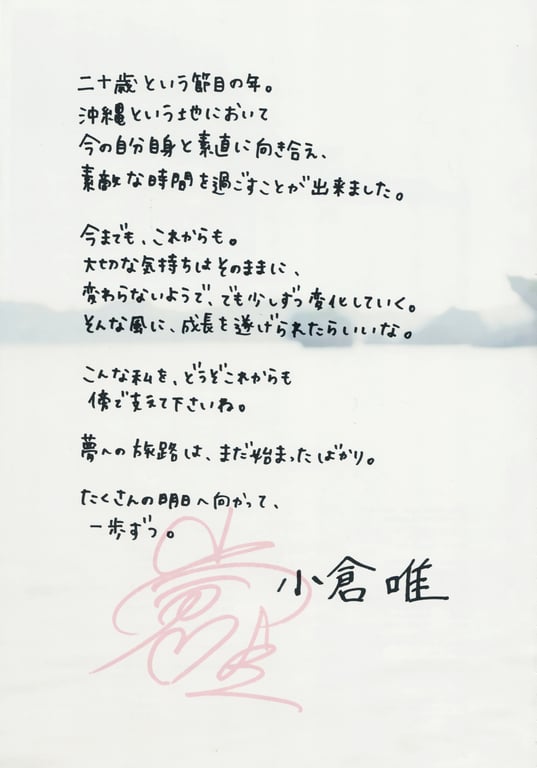 二十歳という節目の年。
沖縄という地において
今の自分自身と素直に向き合え、
素敵な時間を過ごすことが出来ました。
今までも、これからも。
大切な気持ちはそのままに、
変わらないようで、でも少しずつ変化していく。
そんな風に、成長を遂げられたらいいな。
こんな私を、どうぞこれからも
傍で支えて下さいね。
夢への旅路は、まだ始まったばかり。
たくさんの明日へ向かって、
一歩ずつ。
小倉唯